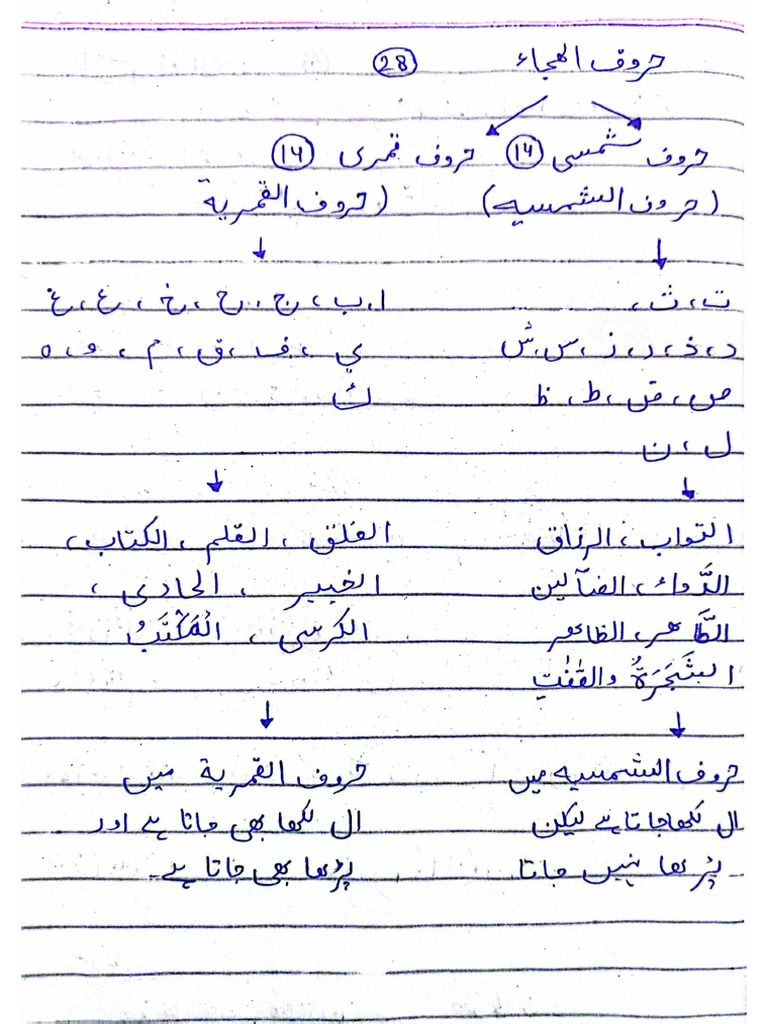 حروف الهجاء 28
حروف شمسی 14 حروف قمری 14
(حروف الشمسيه) (حروف القمرية
ت، ث، ا، ب، ج، ح، خ، ع، غ
د، ذ، ر، ز، س، ش ي، ف، ق، م، و، ه
ص، ض، ط، ظ ك
ل، ن
التواب، الرزاق الفلق، القلم، الكتاب،
الضآلين الخبير، الحادی،
الظاهر الكرسی، المَكْتَبُ
الشَجَرَةُ
حروف الشمسيه میں حروف القمرية میں
ال لکھا جاتا ہے لیکن ال لکھا بھی جاتا ہے اور
پڑھا نہیں جاتا پڑھا بھی جاتا ہے۔